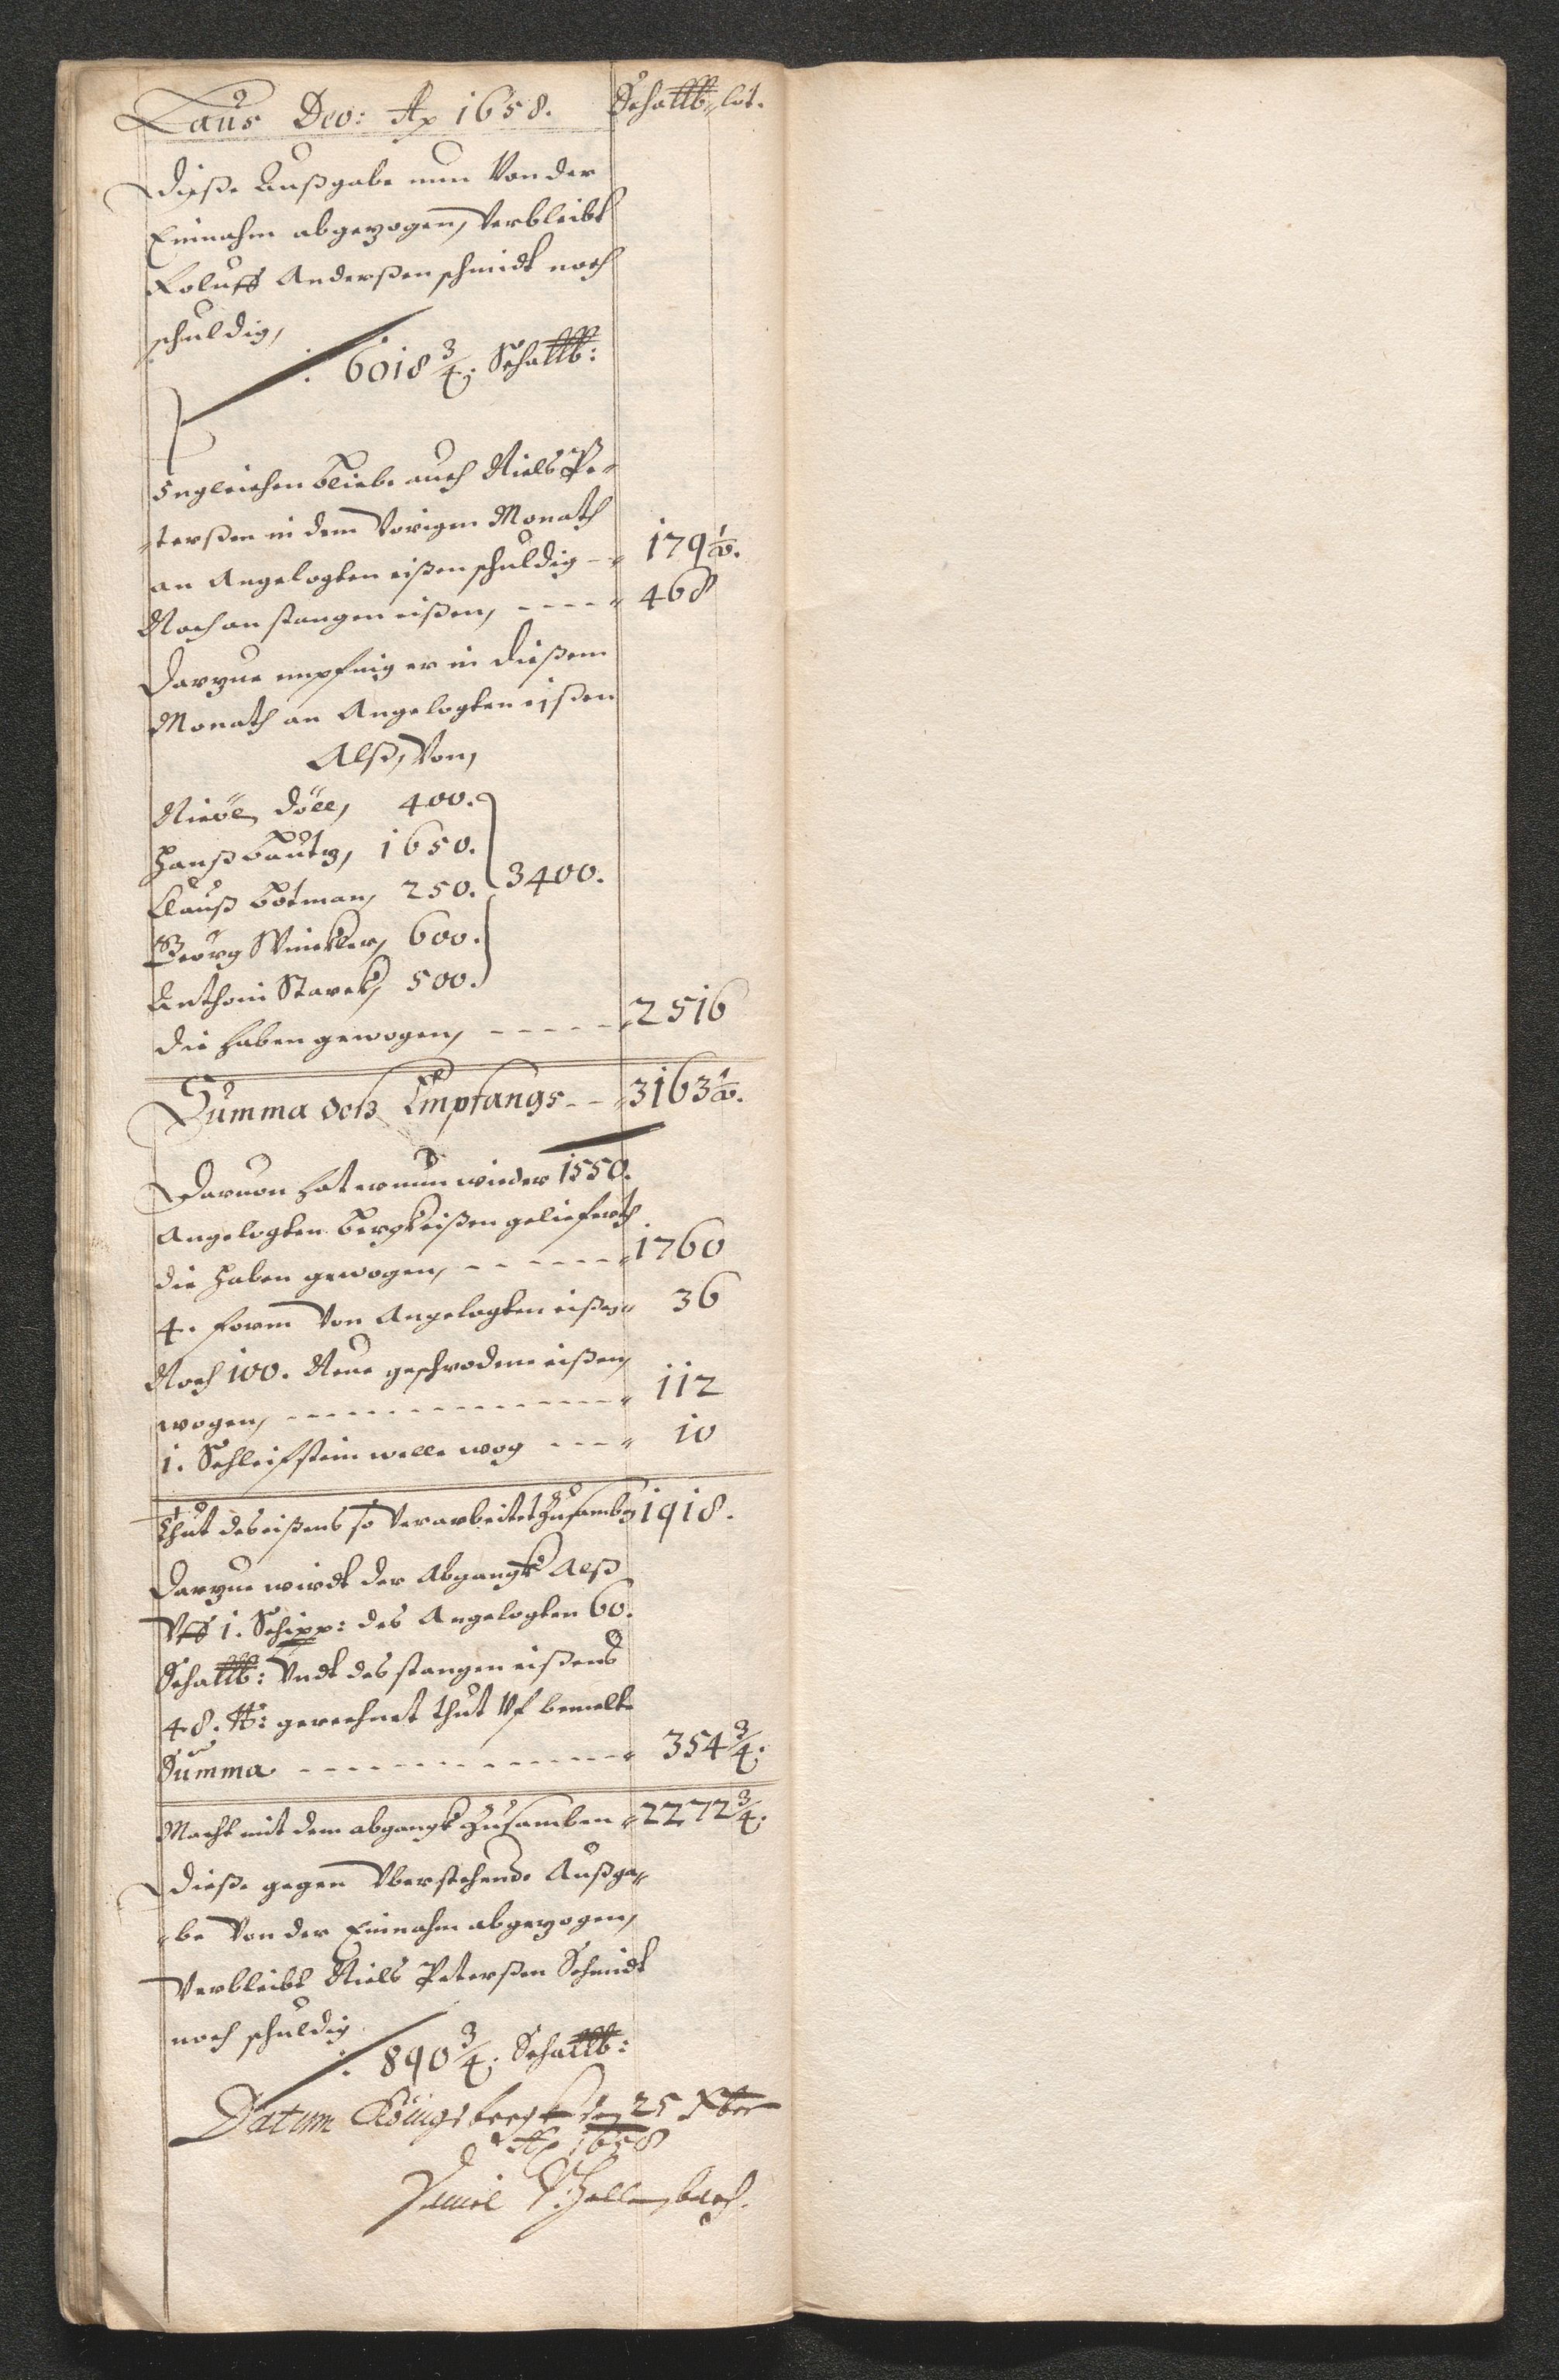 Laus Deo: Ao 1658. Schallb: lot.
Dieße Außgabe nun Von der
Einnahm abgezogen, Verbleibt
Roluff Anderßen schmidt noch
schuldig,
6018 3/4: Schallb:
Ingleichen bliebe auch Niels Pe-
-terßen in dem Vorigen Monath
an Angelogten eißen schuldig -- 179 1/2.
Noch an stangen eißen, ---- 468
Darzue empfing er in dießem
Monath an Angelogten eißen
Alß, Von,
Nicöl Döll, 400.
Hanß Bautz, 1650.
Clauß Botman, 250. 3400.
Georg Winckler, 600.
Anthoni Starck, 500.
die haben gewogen, ----- 2516
Summa deß Empfangs -- 3163 1/2.
Daruon hat er nun wieder 1550.
Angelogten Bergkeißen geliefert,
die haben gewogen, ------ 1760
4. form Von Angelogten eißen 36
Noch 100. Neue geschrodene eißen,
wogen, --------------- 112
1. Schleifstein welle wog ---- 10
Thut des eißens so Verarbeitet Zusamben 1918.
Darzue wirdt der Abgangk Alß
Vff 1. Schipp: des Angelogten 60.
Schallb: Vndt des stangen eißens
48. lb: gerechnet thut Vf bemelte
Summa ------------- 354 3/4:
Macht mit dem abgangk Zusamben 2272 3/4:
Dieße gegen Vberstehende Außga-
-be Von der Einnahm abgezogen,
Verbleibt Niels Peterßen Schmidt
noch schuldig
890 3/4: Schallb:
Datum Königsbergk den 25 Xber
Ao 1658